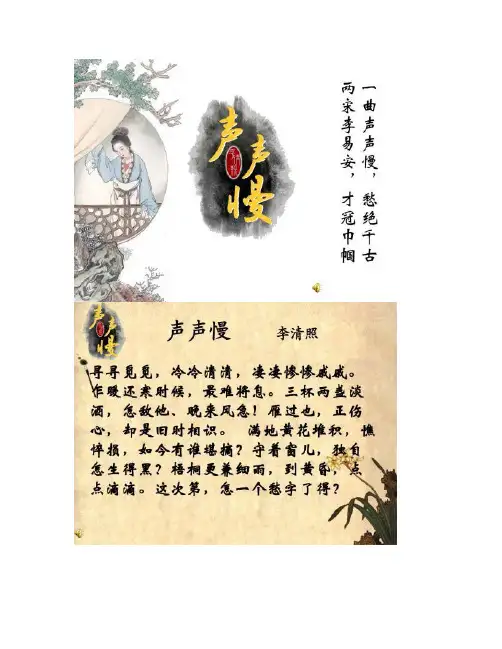 一曲声声慢，愁绝千古
两宋李易安，才冠巾帼
声声慢
声声慢
声声慢 李清照
寻寻觅觅，冷冷清清，凄凄惨惨戚戚。
乍暖还寒时候，最难将息。三杯两盏淡
酒，怎敌他、晚来风急！雁过也，正伤
心，却是旧时相识。 满地黄花堆积，憔
悴损，如今有谁堪摘？守着窗儿，独自
怎生得黑？梧桐更兼细雨，到黄昏、点
点滴滴。这次第，怎一个愁字了得？